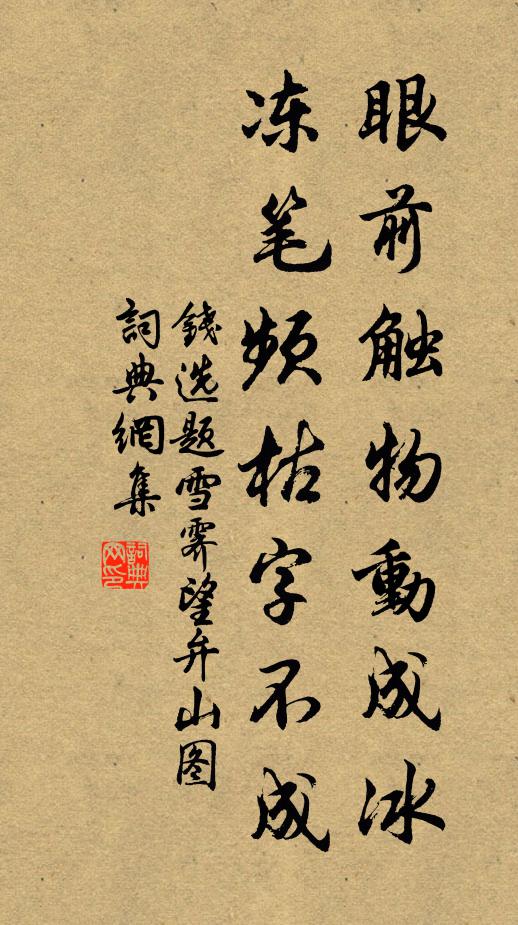 眼前触物動成冰
冻笔频枯字不成
錢选题雪霁望弁山图
詞典網集
詞典网印